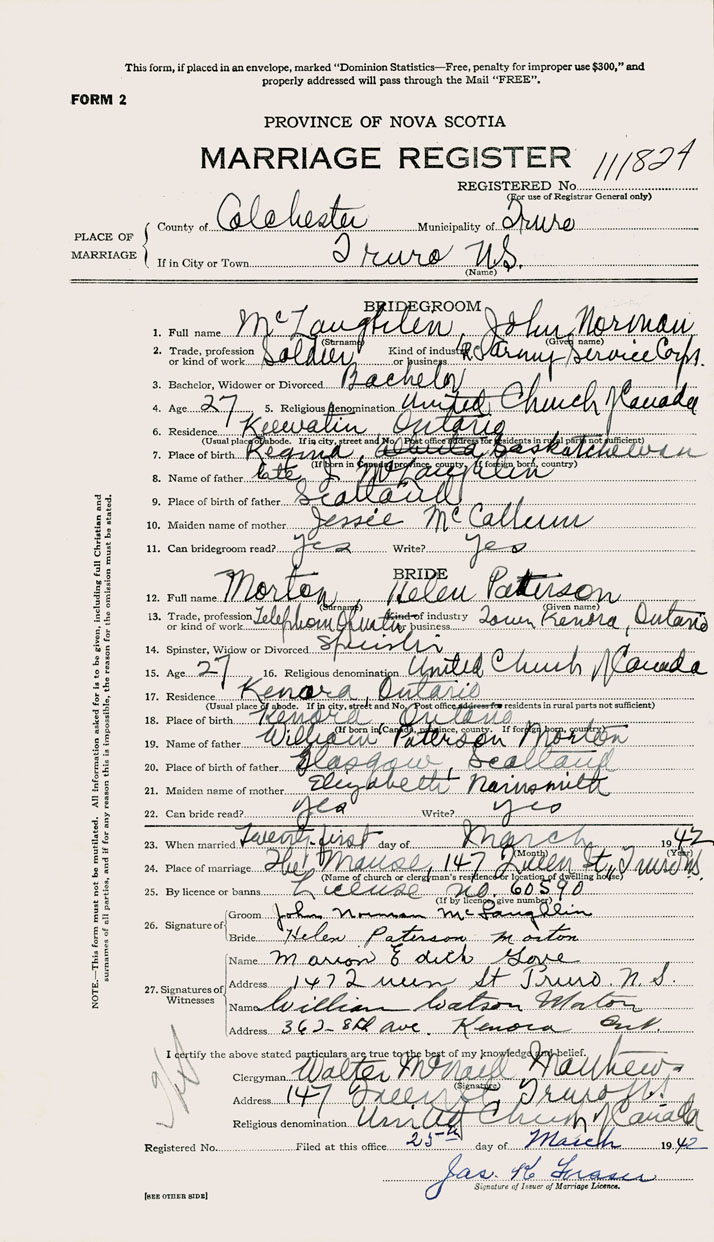 This form, if placed in an envelope, marked "Dominion Statistics—Free, penalty for improper use $300," and
properly addressed will pass through the Mail "FREE".
FORM 2
PROVINCE OF NOVA SCOTIA
MARRIAGE REGISTER
111824
REGISTERED No.
(For use of Registrar General only)
PLACE OF MARRIAGE
County of Colchester Municipality of Truro
If in City or Town Truro N.S.
(Name)
BRIDEGROOM
1. Full name McLaughlin, John Norman
(Surname) (Given name)
2. Trade, profession or kind of work Soldier Kind of industry or business R.C. Army Service Corps.
3. Bachelor, Widower or Divorced Bachelor
4. Age 27 5. Religious denomination United Church of Canada
6. Residence Keewatin Ontario
(Usual place of abode. If in city, street and No. Post office address for residents in rural parts not sufficient)
7. Place of birth Regina, Alberta Saskatchewan
(If born in Canada, province, county. If foreign born, country)
8. Name of father late J. McLaughlin
9. Place of birth of father Scotland
10. Maiden name of mother Jessie McCallum
11. Can bridegroom read? Yes Write? Yes
BRIDE
12. Full name Morton, Helen Paterson
(Surname) (Given name)
13. Trade, profession or kind of work Telephone Operator Kind of industry or business Town Kenora, Ontario
14. Spinster, Widow or Divorced Spinster
15. Age 27 16. Religious denomination United Church of Canada
17. Residence Kenora, Ontario
(Usual place of abode. If in city, street and No. Post office address for residents in rural parts not sufficient)
18. Place of birth Kenora, Ontario
(If born in Canada, province, county. If foreign born, country)
19. Name of father William Paterson Morton
20. Place of birth of father Glasgow, Scotland
21. Maiden name of mother Elizabeth Nairnsmith
22. Can bride read? Yes Write? Yes
23. When married Twenty-first day of March 1942
(Month) (Year)
24. Place of marriage The Manse, 147 Queen St., Truro N.S.
(Name of church or clergyman's residence or location of dwelling house)
25. By licence or banns License no. 60590
(If by licence give number)
26. Signature of
Groom John Norman McLaughlin
Bride Helen Paterson Morton
27. Signatures of Witnesses
Name Marion Edith Gove
Address 147 Queen St Truro. N.S.
Name William Watson Morton
Address 362-8th ave. Kenora Ont.
I certify the above stated particulars are true to the best of my knowledge and belief.
Clergyman Walter McNaill Matthews
(Signature)
Address 147 Queen St Truro N.S.
Religious denomination United Church of Canada
Registered No. Filed at this office 25th day of March 1942
Jas. K Fraser
Signature of Issuer of Marriage Licence.
[SEE OTHER SIDE]
NOTE.—This form must not be mutilated. All information asked for is to be given, including full Christian and
surnames of all parties, and if for any reason this is impossible, the reason for the omission must be stated.